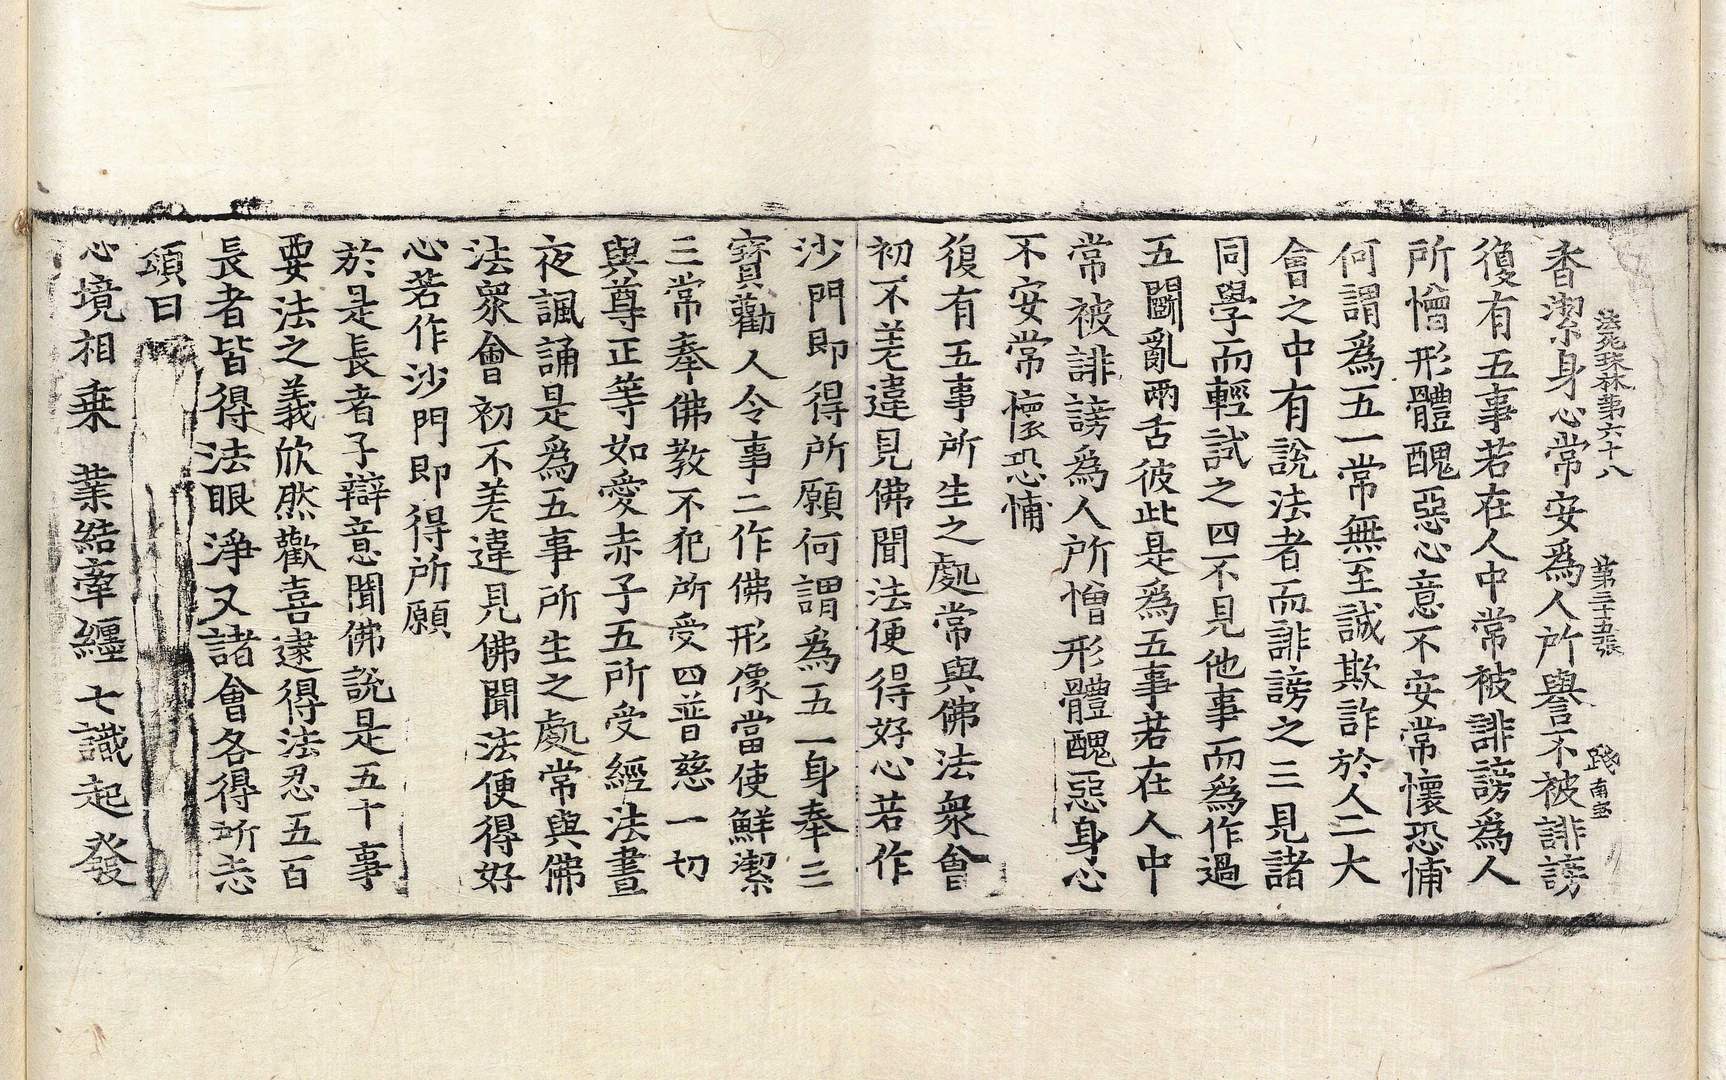 法苑珠林第六十八 第三十五張 踐 南宝
香潔身心常安為人所譽不被誹謗
復有五事若在人中常被誹謗為人
所憎形體醜惡心意不安常懷恐怖
何謂為五一常無至誠欺詐於人二大
會之中有說法者而誹謗之三見諸
同學而輕試之四不見他事而為作過
五鬪亂兩舌彼此是為五事若在人中
常被誹謗為人所憎形體醜惡身心
不安常懷恐怖
復有五事所生之處常與佛法衆會
初不差違見佛聞法便得好心若作
沙門即得所願何謂為五一身奉三
寶勸人令事二作佛形像當使鮮潔
三常奉佛教不犯所受四普慈一切
與尊正等如愛赤子五所受經法晝
夜諷誦是為五事所生之處常與佛
法衆會初不差違見佛聞法便得好
心若作沙門即得所願
於是長者子辯意聞佛說是五十事
要法之義欣然歡喜逮得法忍五百
長者皆得法眼淨又諸會各得所志
頌曰
心境相乗 業結牽纏 七識起發